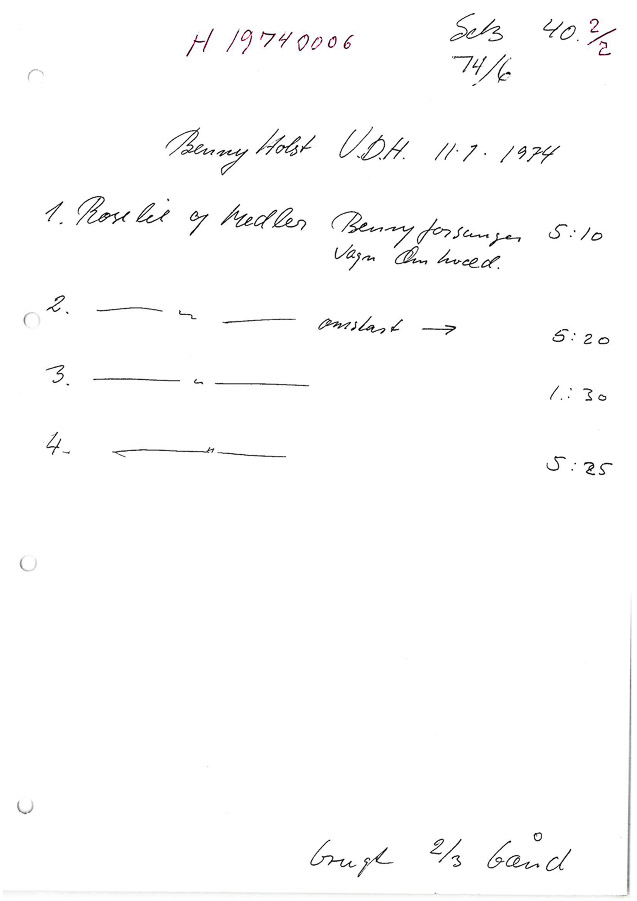 H 19740006
Seb 40. 2/2
74/6
Benny Holst V.D.H. 11.7. 1974
1. Roselil og Medler Benny forsanger 5:10
Vagn Omkvæd.
2. —— " —— omstart → 5:20
3. —— " —— 1.:30
4. —— " —— 5:25
brugt 2/3 bånd